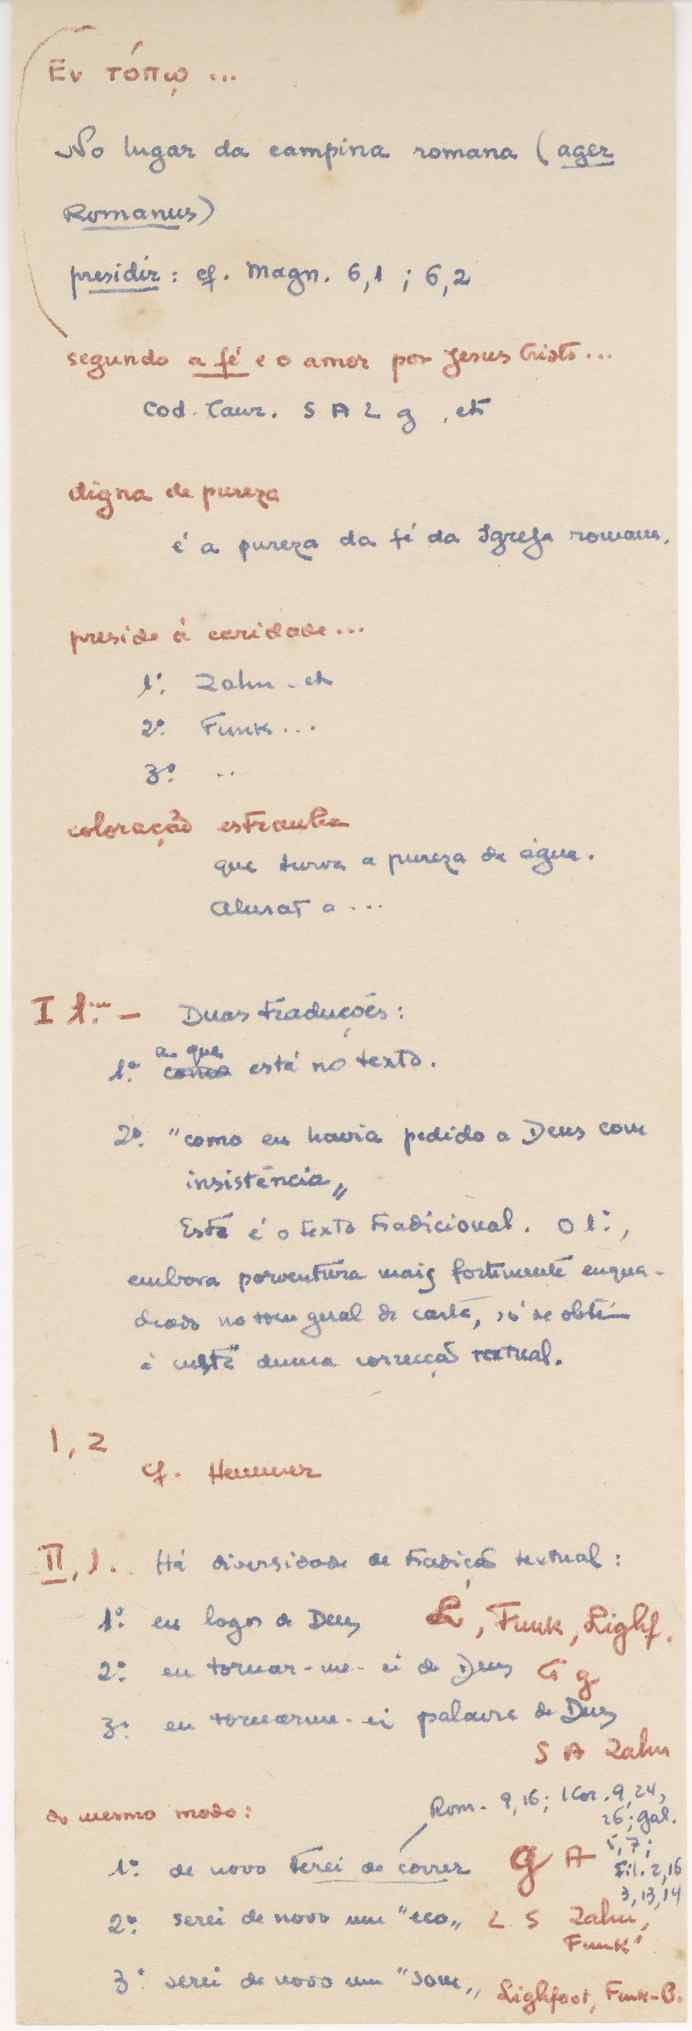 Ἐν τόπῳ ...
No lugar da campina romana (ager
Romanus)
presidir : cf. Magn. 6,1 ; 6,2
segundo a fé e o amor por Jesus Cristo ...
Cod. Taur. S A L g , etc
digna de pureza
é a pureza da fé da Igreja romana.
preside à caridade ...
1º. Zahn - etc
2º. Funk ...
3º. ..
coloração estranha
que turva a pureza da água.
Alusão a ...
I 1. — Duas traduções :
1ª. como a que está no texto.
2ª. "como eu havia pedido a Deus com
insistência"
Este é o texto tradicional. O 1º,
embora porventura mais fortemente enqua-
drado no tom geral da carta, só se obtém
à custa duma correcção textual.
1, 2
cf. Hemmer
II, 1. Há diversidade de tradição textual :
1º. eu logos de Deus L, Funk, Lighf.
2º. eu tornar-me-ei de Deus G g
3º. eu tornarme-ei palavra de Deus
S A Zahn
do mesmo modo :
Rom. 9,16 ; 1 Cor. 9,24,
26 ; Gal.
5,7 ;
Fil. 2,16
3,13,14
1º. de novo terei de correr g A
2º. serei de novo um "eco" L S Zahn,
Funk
3º serei de novo um "som" Lighfoot, Funk-B.